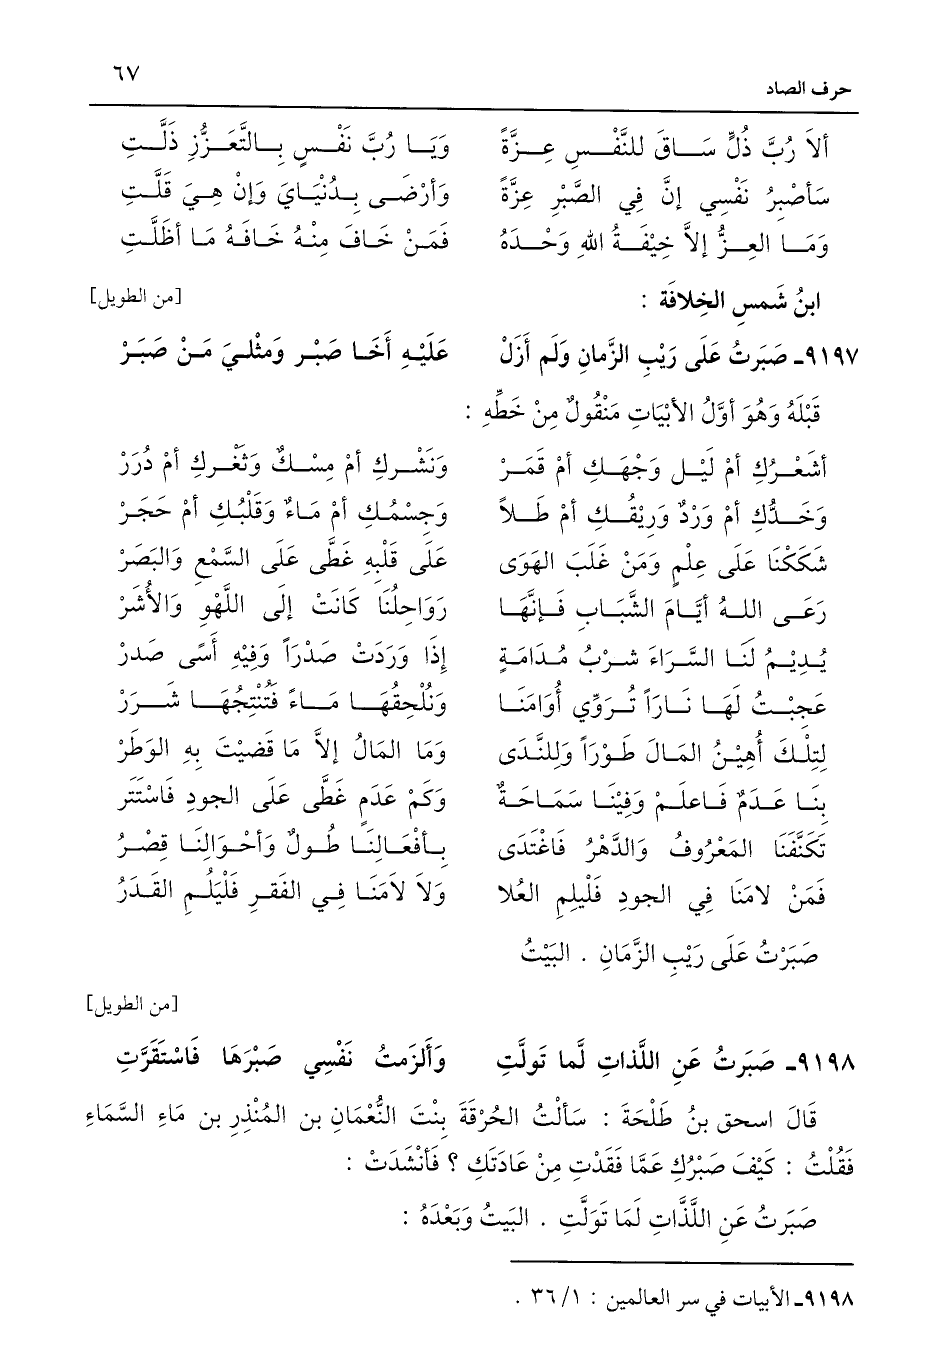 ٦٧
حرف الصاد
أَلاَ رُبَّ ذُلٍّ سَاقَ للنَّفْسِ عِزَّةً وَيَا رُبَّ نَفْسٍ بِالتَّعَزُّزِ ذَلَّتِ
سَأَصْبِرُ نَفْسِي إنَّ فِي الصَّبْرِ عِزَّةً وَأَرْضَى بِدُنْيَايَ وَإنْ هِيَ قَلَّتِ
وَمَا العِزُّ إلاَّ خِيْفَةُ اللهِ وَحْدَهُ فَمَنْ خَافَ مِنْهُ خَافَهُ مَا أظَلَّتِ
ابنُ شَمسِ الخِلافَة : [من الطويل]
٩١٩٧ـ صَبَرتُ عَلَى رَيْبِ الزَّمانِ وَلَم أَزَلْ عَلَيْهِ أَخَا صَبْرٍ وَمِثْلِيَ مَنْ صَبَرْ
قَبْلَهُ وَهُوَ أوَّلُ الأَبْيَاتِ مَنْقُولٌ مِنْ خَطِّهِ :
أشَعْرُكِ أمْ لَيْلٌ وَجْهَكِ أمْ قَمَرْ وَنَشْرِكِ أمْ مِسْكٌ وَثَغْرِكِ أمْ دُرَرْ
وَخَدُّكِ أمْ وَرْدٌ وَرِيْقُكِ أمْ طَلاً وَجِسْمُكِ أمْ مَاءٌ وَقَلْبُكِ أمْ حَجَرْ
شَكَكْنَا عَلَى عِلْمٍ وَمَنْ غَلَبَ الهَوَى عَلَى قَلْبِهِ غَطَّى عَلَى السَّمْعِ وَالبَصَرْ
رَعَى اللهُ أيَّامَ الشَّبَابِ فَإنَّهَا رَوَاحِلُنَا كَانَتْ إلَى اللَّهْوِ وَالأَشَرْ
يُدِيْمُ لَنَا السَّرَاءَ شَرْبُ مُدَامَةٍ إِذَا وَرَدَتْ صَدْرَاً وَفِيْهِ أَسًى صَدَرْ
عَجِبْتُ لَهَا نَارَاً تُرَوِّي أُوَامَنَا وَنُلْحِقُهَا مَاءً فَتُنْتِجُهَا شَرَرْ
لِتِلْكَ أُهِيْنُ المَالَ طَوْرَاً وَلِلنَّدَى وَمَا المَالُ إلاَّ مَا قَضَيْتَ بِهِ الوَطَرْ
بِنَا عَدَمٌ فَاعلَمْ وَفِيْنَا سَمَاحَةٌ وَكَمْ عَدَمٍ غَطَّى عَلَى الجودِ فَاسْتَتَر
تَكَنَّفَنَا المَعْرُوفُ وَالدَّهْرُ فَاغْتَدَى بِأَفْعَالِنَا طُولٌ وَأَحْوَالِنَا قِصَرُ
فَمَنْ لامَنَا فِي الجودِ فَلْيلِمِ العُلاَ وَلاَ لاَمَنَا فِي الفَقرِ فَلْيَلُمِ القَدَرُ
صَبَرْتُ عَلَى رَيْبِ الزَّمَانِ . البَيْتُ
[من الطويل]
٩١٩٨ـ صَبَرتُ عَنِ اللَّذاتِ لَّما تَولَّتِ وَأَلزَمتُ نَفْسِي صَبْرَهَا فَاسْتَقَرَّتِ
قَالَ اسحق بنُ طَلْحَةَ : سَأَلْتُ الحُرْقَةَ بِنْتَ النُّعْمَانِ بن المُنْذِرِ بن مَاءِ السَّمَاءِ
فَقُلْتُ : كَيْفَ صَبْرُكِ عَمَّا فَقَدْتِ مِنْ عَادَتَكِ ؟ فَأَنْشَدَتْ :
صَبَرتُ عَنِ اللَّذَّاتِ لَمَا تَوَلَّتِ . البَيتُ وَبَعْدَهُ :
٩١٩٨ـ الأبيات في سر العالمين : ١/ ٣٦ .